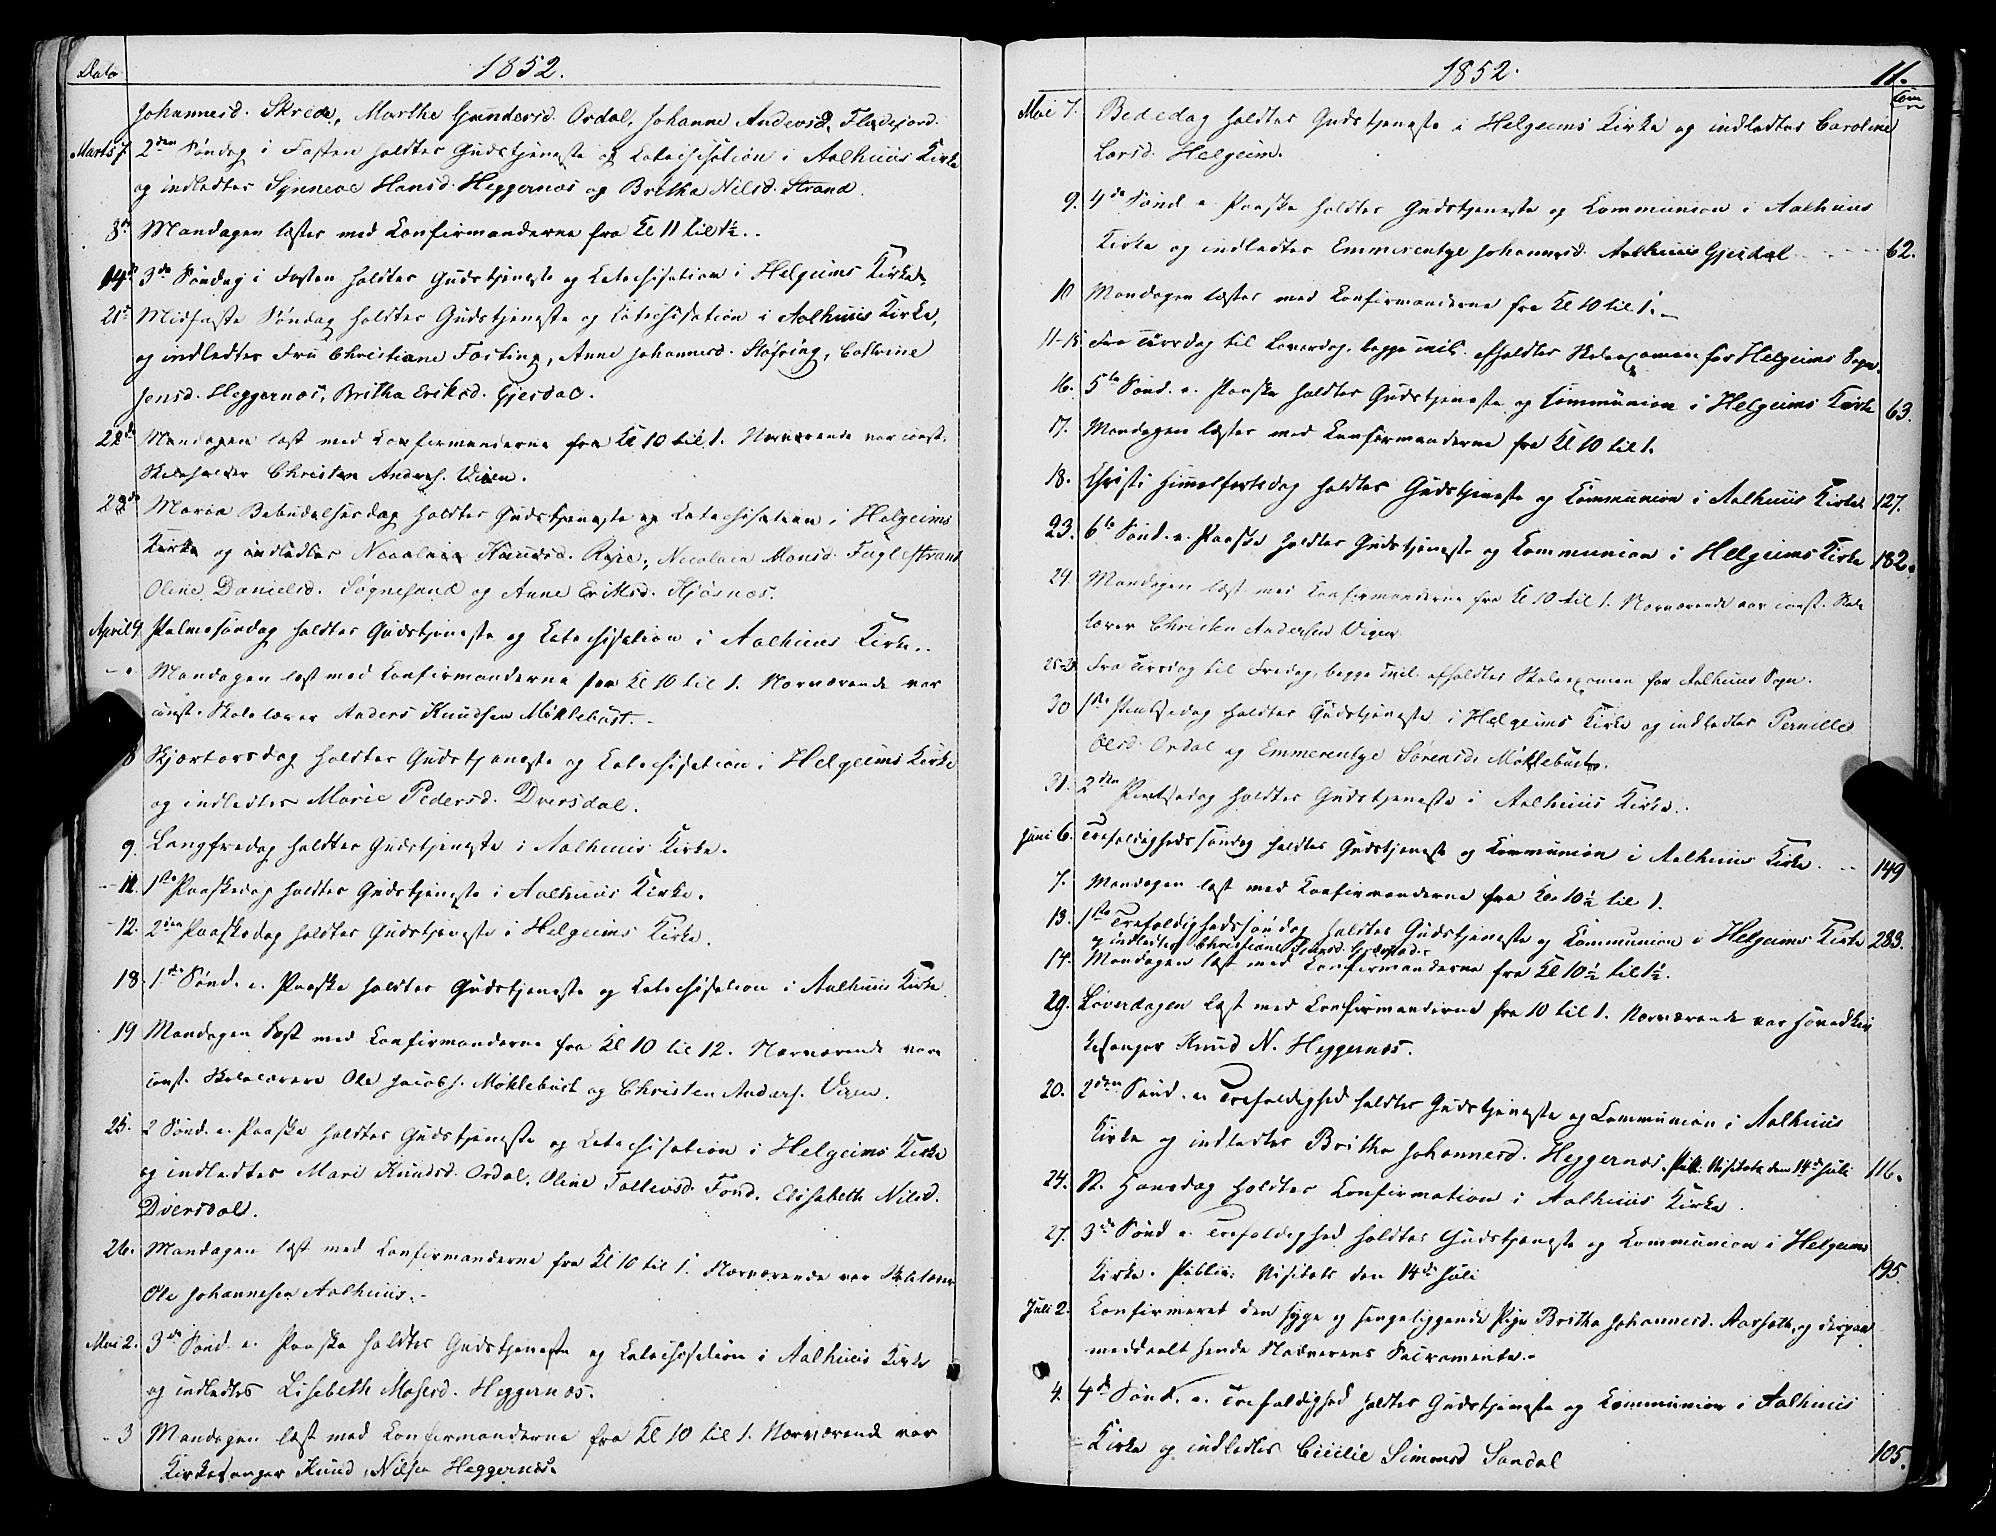 Dato
1852.
Johannesd. Skrede, Marthe Gundersd. Ordal, Johanne Andersd. Fladefjord.
Marts 7. 2den Søndag i Fasten holdtes Gudstjeneste og Catechisation i Aalhuus Kirke
og indledtes Synneve Hansd. Heggernæs og Britha Nilsd. Strand.
8de Mandagen læstes med Confirmanderne fra Kl 11 til 1½.
14de 3die Søndag i Fasten holdtes Gudstjeneste og Catechisation i Helgeims Kirke.
21de Midfaste Søndag holdtes Gudstjeneste og Catechisation i Aalhuus Kirke,
og indledtes Fru Christiane Fasting, Anne Johannesd. Støfring, Cathrine
Jensd. Heggernæs, Britha Eriksd. Gjesdal.
22de Mandagen læst med Confirmanderne fra Kl 10 til 1. Nærværende var const.
Skoleholder Christen Anders. Vigen.
Maria Bebudelsesdag holdtes Gudstjeneste og Catechisation i Helgeims
Kirke og indledtes Nicolaia Knudsd. Nicolaia Monsd. Fuglestrand
Oline Danielsd. Søgnesand og Anne Eriksd. Kjøsnæs.
April 4. Palmesøndag holdtes Gudstjeneste og Catechisation i Aalhuus Kirke.
Mandagen læst med Confirmanderne fra Kl 10 til 1. Nærværende var
const. Skolelærer Anders Knudsen Møklebust.
8 Skjærtorsdag holdtes Gudstjeneste og Catechisation i Helgeims Kirke
og indledtes Marie Pedersd. Dversdal.
9. Langfredag holdtes Gudstjeneste i Aalhuus Kirke.
11. 1ste Paaskedag holdtes Gudstjeneste i Aalhuus Kirke.
12. 2den Paaskedag holdtes Gudstjeneste i Helgeims Kirke.
18 1ste Sønd. e. Paaske holdtes Gudstjeneste og Catechisation i Aalhuus Kirke.
19 Mandagen læst med Confirmanderne fra Kl 10 til 12. Nærværende vare
const. Skolelærere Ole Jacobs. Møklebust og Christen Anders. Vigen.
25. 2 Sønd. e. Paaske holdtes Gudstjeneste og Catechisation i Helgeims Kirke
og indledtes Mari Knudsd. Ordal, Oline Tollevsd. Fond, Elisabeth Nilsd.
Dversdal.
26. Mandagen læst med Confirmanderne fra Kl 10 til 1. Nærværende var Skolelærer
Ole Johannesen Aalhuus.
Mai 2. 3die Sønd. e. Paaske holdtes Gudstjeneste og Catechisation i Aalhuus Kirke
og indledtes Lisebeth Mosesd. Heggernæs.
3 Mandagen læst med Confirmanderne fra Kl 10 til 1. Nærværende var
Kirkesanger Knud Nilsen Heggernæs.
1852.
11.
Mai 7. Bededag holdtes Gudstjeneste i Helgeims Kirke og indledtes Caroline
Larsd. Helgeim.
9. 4de Sønd. e. Paaske holdtes Gudstjeneste og Communion i Aalhuus
Kirke og indledtes Emmerentye Johannesd. Aalhuus Gjesdal 62.
10 Mandagen læstes med Confirmanderne fra Kl 10 til 1.
11-15 Fra Tirsdag til Løverdag, begge incl. afholdtes Skoleexamen for Helgeims Sogn.
16. 5te Sønd. e. Paaske holdtes Gudstjeneste og Communion i Helgeims Kirke 63.
17. Mandagen læstes med Confirmanderne fra Kl 10 til 1.
18. Christi Himmelfartsdag holdtes Gudstjeneste og Communion i Aalhuus Kirke 127.
23. 6te Sønd. e. Paaske holdtes Gudstjeneste og Communion i Helgeims Kirke 182.
24 Mandagen læst med Confirmanderne fra Kl 10 til 1. Nærværende var const. Skole
lærer Christen Andersen Vigen.
25-28 Fra Tirsdag til Fredag, begge incl. afholdtes Skoleexamen for Aalhuus Sogn.
30 1ste Pintsedag holdtes Gudstjeneste i Helgeims Kirke og indledtes Pernille
Olsd. Ordal og Emmerentye Sørensd. Møklebust.
31. 2den Pintsedag holdtes Gudstjeneste i Aalhuus Kirke.
Juni 6. Trefoldighedssøndag holdtes Gudstjeneste og Communion i Aalhuus Kirke. 149
7. Mandagen læst med Confirmanderne fra Kl. 10½ til 1.
13. 1ste Trefoldighedssøndag holdtes Gudstjeneste og Communion i Helgeims Kirke 283.
og indledtes Christiane
14. Mandagen læst med Confirmanderne fra Kl 10½ til 1½.
Løverdagen læst med Confirmanderne fra 10 til 1. Nærværende var Hovedkir
kesanger Knud N. Heggernæs.
20. 2den Sønd. e. Trefoldighed holdtes Gudstjeneste og Communion i Aalhuus
Kirke og indledtes Britha Johannesd. Heggernæs. Visitats den 14de Juli 116.
24. St. Hansdag holdtes Confirmation i Aalhuus Kirke.
27. 3die Sønd. e. Trefoldighed holdtes Gudstjeneste og Communion i Helgeims
Kirke. Public: Visitats den 14de Juli 195.
Juli 2. Confirmeret den syge og sengeliggende Pige Britha Johannesd. Aarseth, og derpaa
meddeelt hende Nadverens Sacramente.
4. 4de Sønd. e. Trefoldighed holdtes Gudstjeneste og Communion i Aalhuus
Kirke og indledtes Cicilie Simensd Sandal 105.